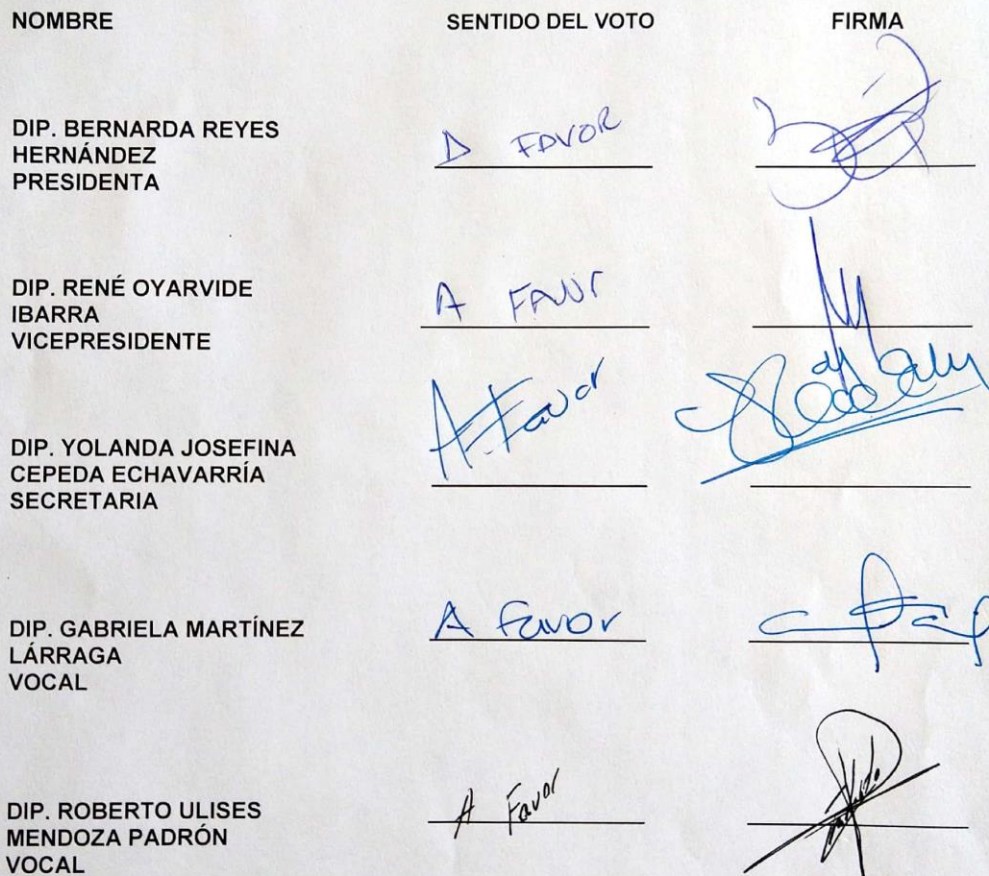 NOMBRE SENTIDO DEL VOTO FIRMA
DIP. BERNARDA REYES
HERNÁNDEZ
PRESIDENTA
A FAVOR
DIP. RENÉ OYARVIDE
IBARRA
VICEPRESIDENTE
A FAVOR
DIP. YOLANDA JOSEFINA
CEPEDA ECHAVARRÍA
SECRETARIA
A Favor
DIP. GABRIELA MARTÍNEZ
LÁRRAGA
VOCAL
A Favor
DIP. ROBERTO ULISES
MENDOZA PADRÓN
VOCAL
A Favor